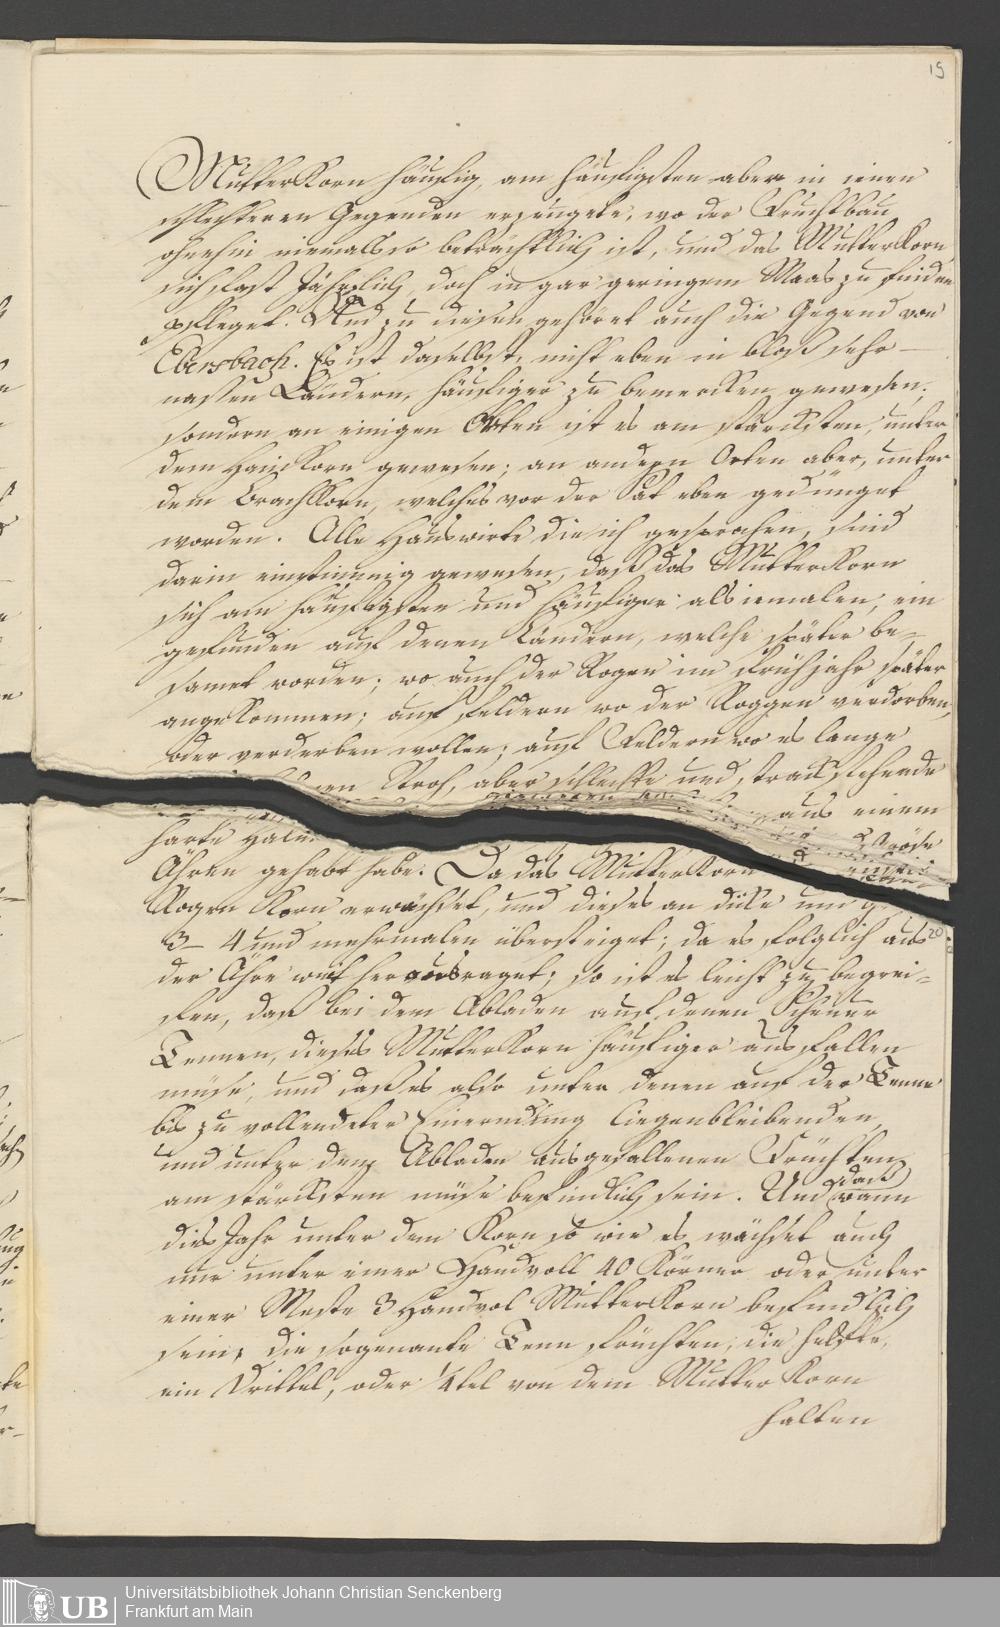 19
MutterKorn häufig, am häufigsten aber in ienen
schlechteren Gegenden erzeugete, wo der Fruchtbau
ohnehin niemals so beträchtlich ist, und das MutterKorn
sich fast Jährlich, doch in gar geringem Maas zu finden
pfleget. Und zu diesen gehöret auch die Gegend von
Ebersbach. Es ist daselbst, nicht eben in blos sehr
nassen Ländern, häufiger zu bemercken gewesen;
sondern an einigen Orten ist es am stärcksten, unter
dem HaidKorn gewesen; an andern Orten aber, unter
dem BrachKorn, welches vor der Sat eben gedünget
worden. Alle Hauswirte die ich gesprochen, sind
darin einstimmig gewesen, daß das MutterKorn
sich am häufigsten und häufiger als iemalen, ein
gefunden auf denen Ländern, welche später be-
samet worden; wo auch der Rogen im Frühjahr später
angekommen; auf Feldern wo der Roggen verdorben,
oder verderben wollen; auf Feldern wo es lange
Stroh, aber schlechte und, starck stehende
aus einem
harte Halm
Ähren gehabt habe. Da das MutterKorn
Rogen Korn erwächset, und dieses an dicke und
3– 4 und mehrmalen übersteiget; da es folglich aus
20
der Ähre weit heraus raget; so ist es leicht zu begrei-
fen, daß bei dem Abladen auf denen Scheuer
Tennen, dieses MutterKorn häufiger ausfallen
müse, und daß es also unter denen auf der Tenne
bis zu vollendeter Einerndung liegenbleibenden,
und unter dem Abladen ausgefallenen Früchten
am stärcksten müse befindlich sein. Und daß wann
dies Jahr unter dem Korn so wie es wächset auch
nur unter einer Handvoll 40 Körner oder unter
einer Meste 3 Handvol MutterKorn befindlich
sein, die sogenante Tenn Früchten, die helfte,
ein Drittel, oder 1/4tel von dem Mutter Korn
halten
UB
Universitätsbibliothek Johann Christian Senckenberg
Frankfurt am Main